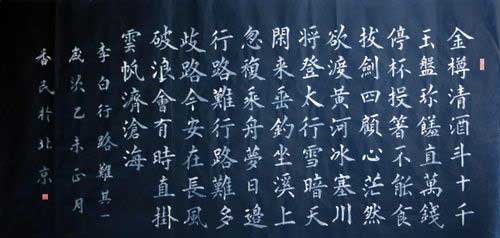 金樽清酒斗十千
玉盤珎饈直萬錢
停杯投箸不能食
拔劍四顧心茫然
欲渡黃河冰塞川
將登太行雪暗天
閑来垂釣坐溪上
忽複乘舟夢日邊
行路難行路難多
歧路今安在長風
破浪會有時直掛
雲帆濟滄海
李白行路難其一
歲次乙未正月
香民於北京